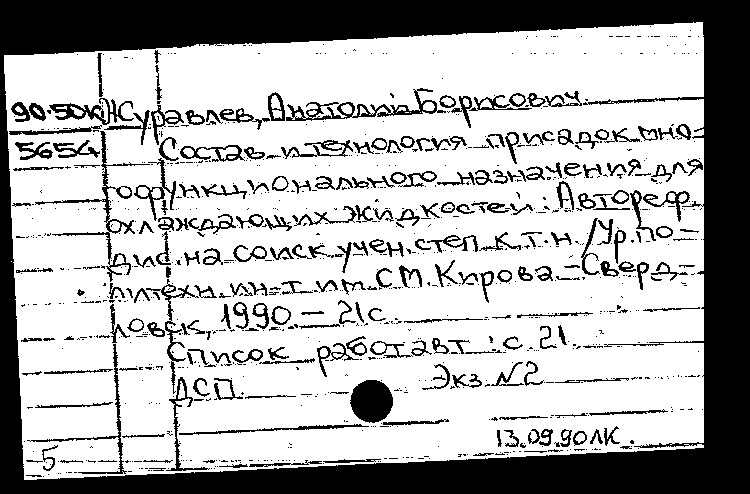 90-50к Журавлев, Анатолий Борисович.
5654 Состав и технология присадок мно-
гофункционального назначения для
охлаждающих жидкостей: Автореф.
дис. на соиск учен. степ к.т.н /Ур. по-
литехн. ин-т им. С.М. Кирова. - Сверд-
ловск, 1990. - 21 с.
Список работ авт: с. 21.
ДСП. Экз. №2
13.09.90 ЛК.
5